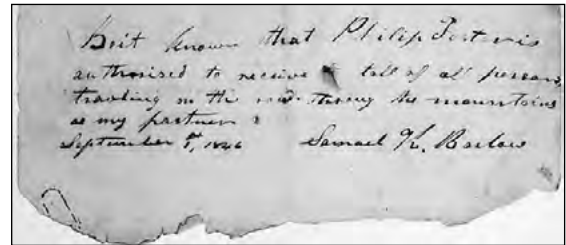 Beit known that Philip Foster is
authorised to receive toll of all persons
traviling on the road throug the mountains
as my partner
September 1st, 1846 Samuel K. Barlow